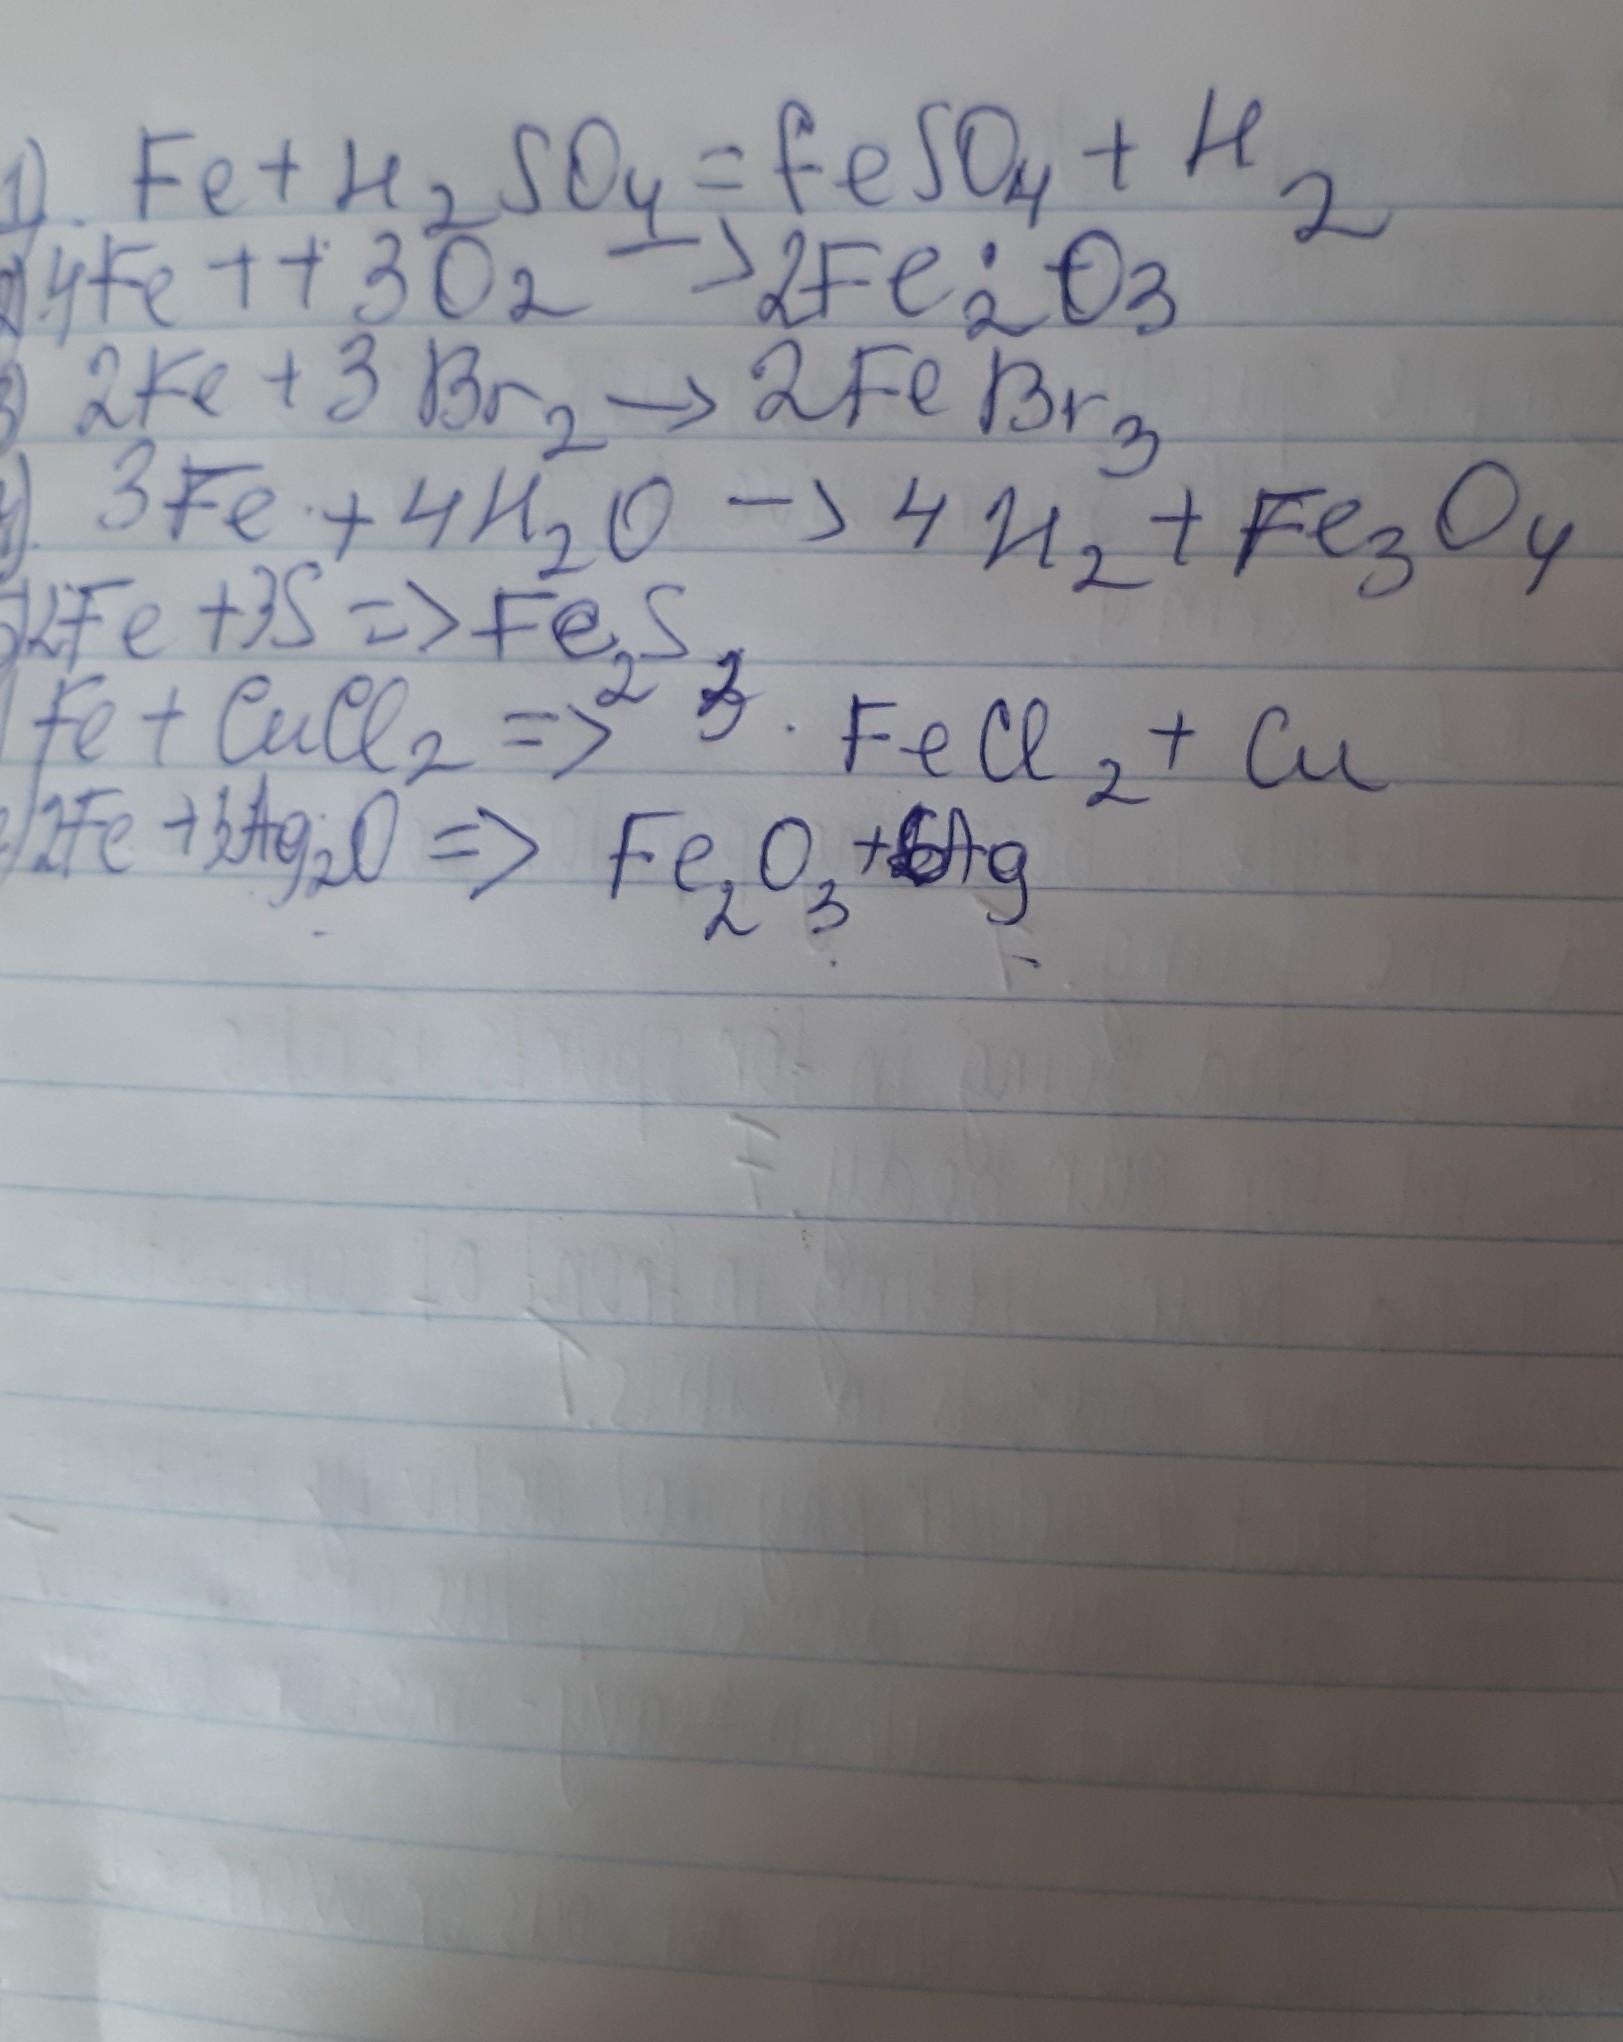 1). Fe + H2SO4 = FeSO4 + H2
4Fe + + 3O2 → 2Fe2O3
2Fe + 3Br2 → 2FeBr3
3Fe + 4H2O → 4H2 + Fe3O4
2Fe + 3S => Fe2S3
Fe + CuCl2 => FeCl2 + Cu
2Fe + 3Ag2O => Fe2O3 + 6Ag